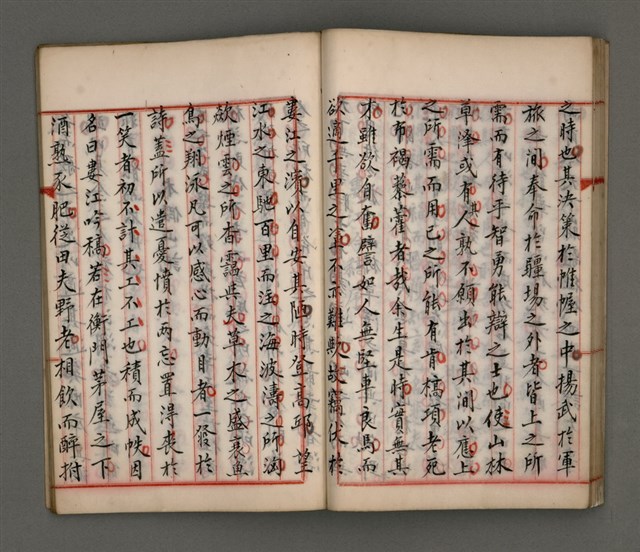 之時也其決策於帷幄之中揚武於軍
旅之間奉命於疆場之外者皆上之所
需而有待乎智勇能辯之士也使山林
草澤或有其人孰不願出於其間以應上
之所需而用己之所能有肯槁項老死
於布褐藜藿者哉余生是時實無其
才雖欲自奮譬如人無堅車良馬而
欲適千里之塗不亦難歟故竊伏於
婁江之濱以自安其陋時登高邱望
江水之東馳百里而注之海波濤之所洶
欻煙雲之所杳靄與夫草木之盛衰魚
鳥之翔泳凡可以感心而動目者一發於
詩蓋所以遣憂憤於兩忘置得喪於
一笑者初不計其工不工也積而成帙因
名曰婁江吟稿若在衡門茅屋之下
酒熟豕肥從田夫野老相飲而醉拊